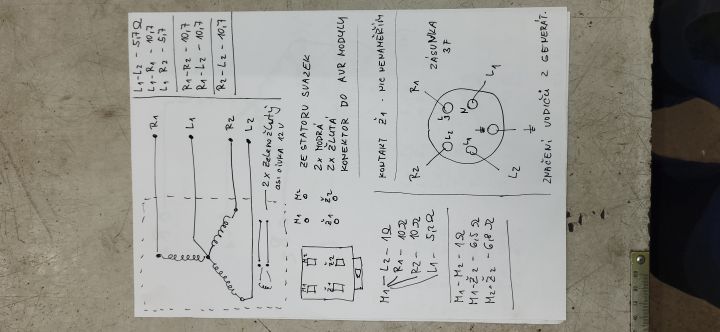 L1-L2 - 5,7 Ω
L1-R1 - 10,7
L1 R2 - 5,7
R1-R2 - 10,7
R1-L2 - 10,7
R2-L2 - 10,7
R1
L1
R2
L2
2x zelenožlutý
asi cívka 12V
ZE STATORU SVAZEK
2x MODRÁ
2x ŽLUTÁ
KONEKTOR DO AVR MODULU
M1 M2
Ž1 Ž2
M1 M2
Ž1 Ž2
KONTAKT Ž1 - NIC NENAMĚŘÍM
ZÁSUVKA
3F
R1
L1
R2
L2
L3
N
L2
L1
ZNAČENÍ VODIČŮ Z GENERÁT.
M1 - L2 - 1Ω
R1 - 10Ω
R2 - 10Ω
L1 - 5,2Ω
M1-M2 - 1Ω
M1-Ž2 - 6,5Ω
M2-Ž2 - 6,8Ω